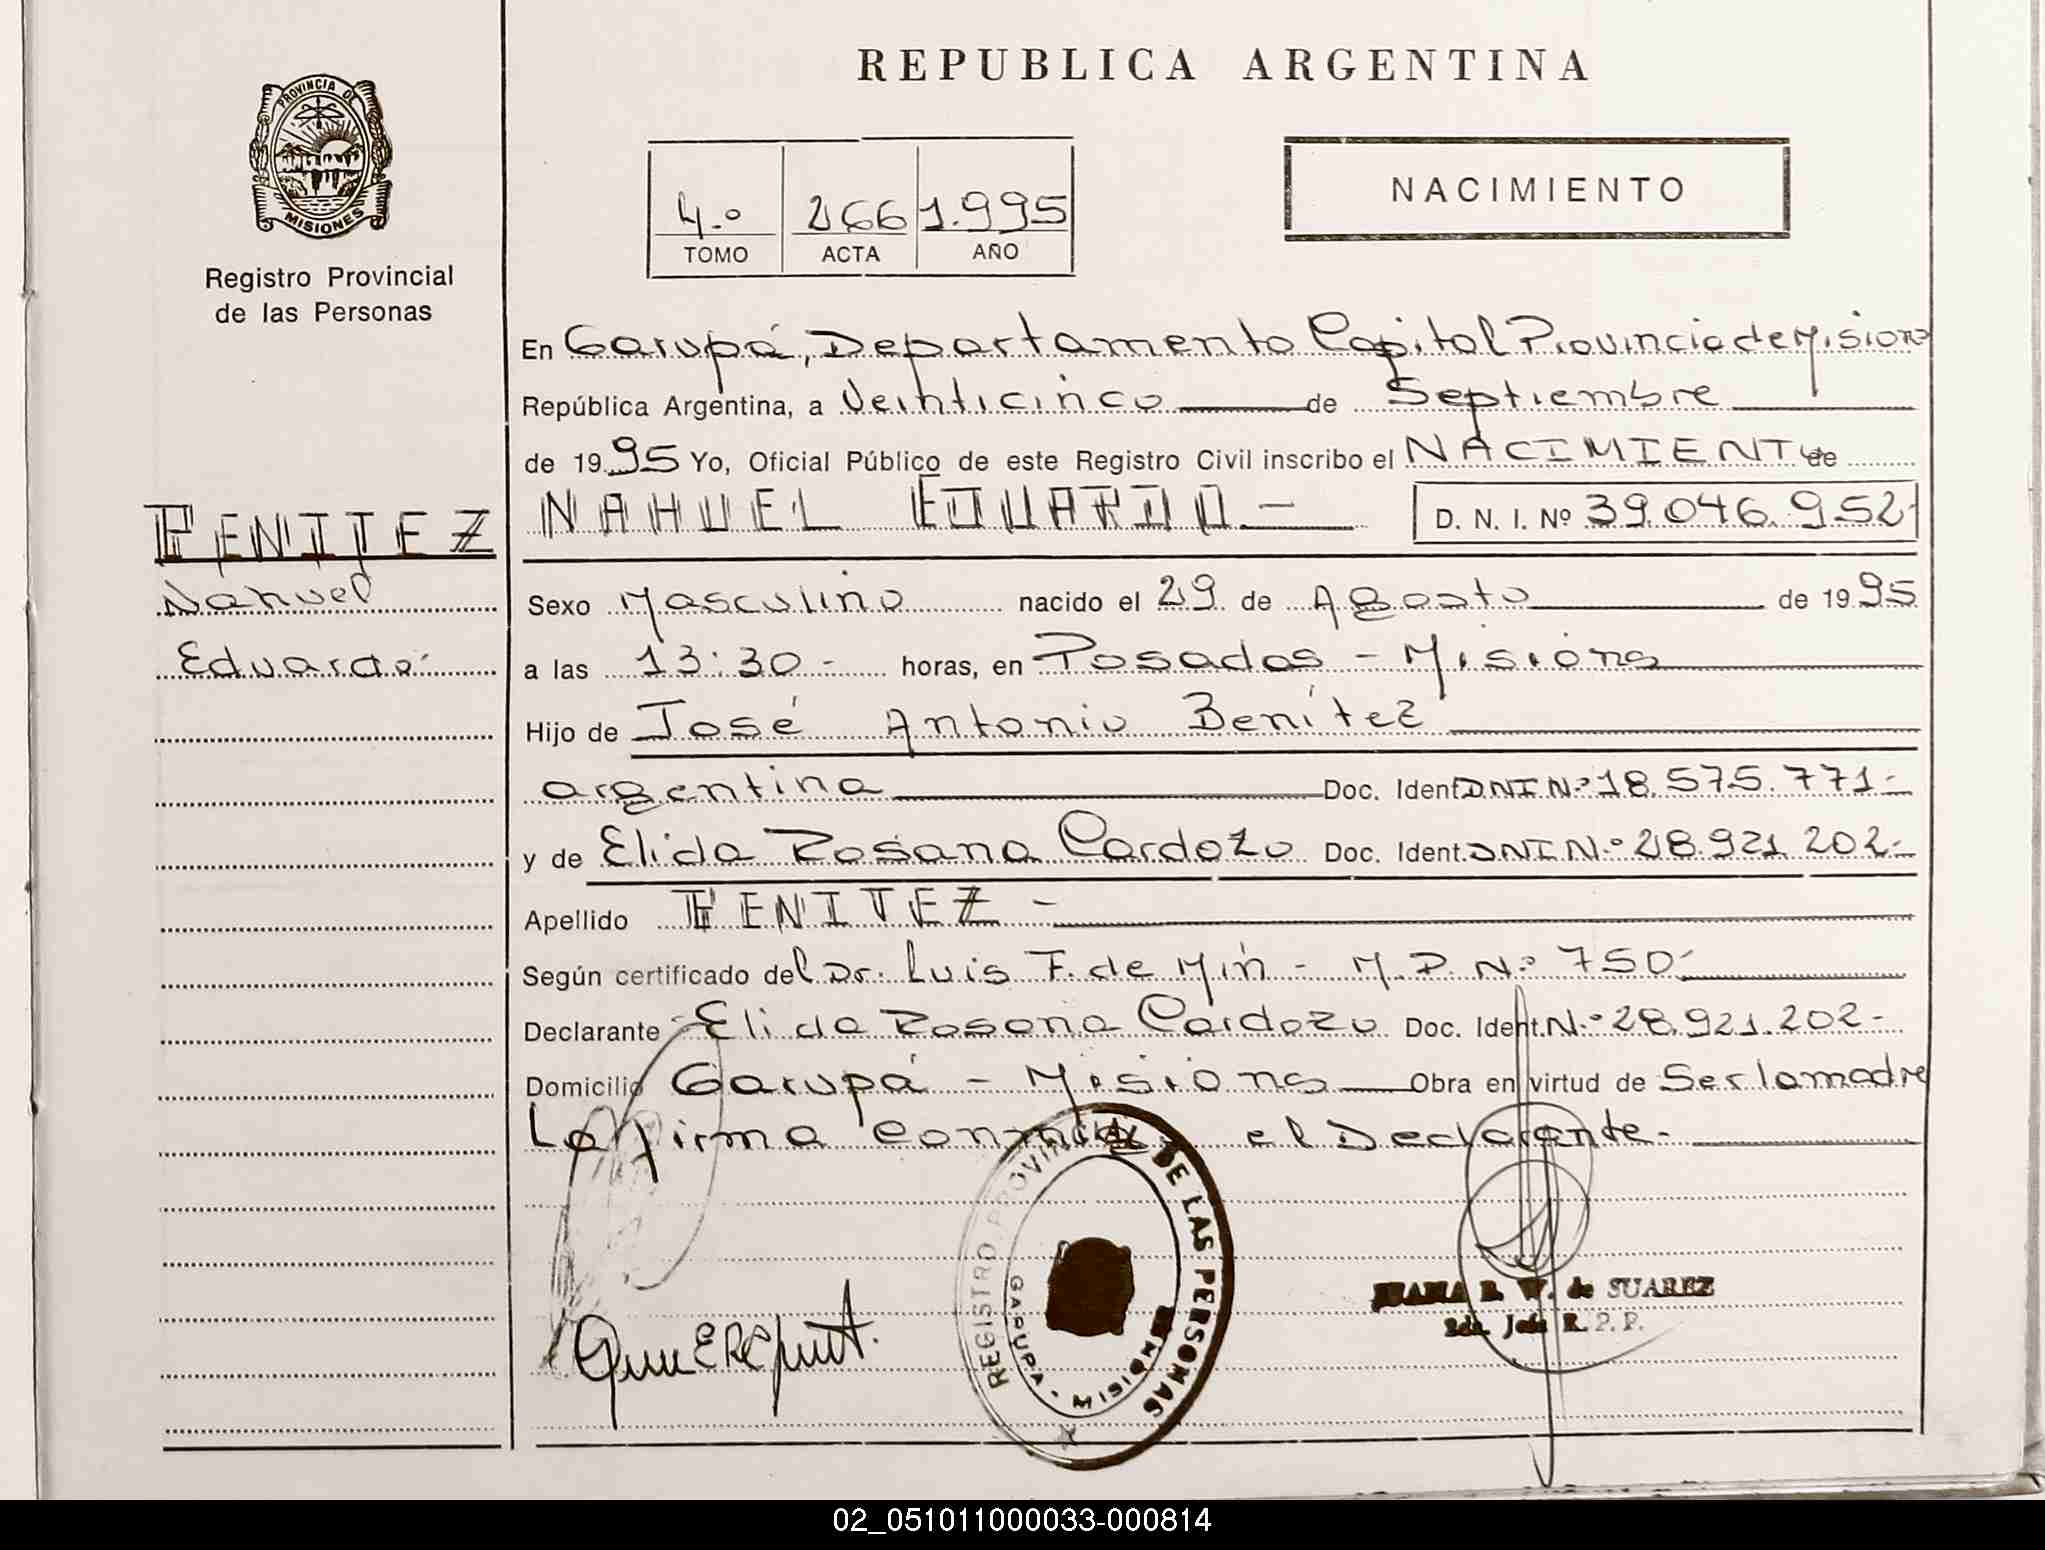 REPUBLICA ARGENTINA
PROVINCIA DE
MISIONES
Registro Provincial
de las Personas
4.º 266 1.995
TOMO ACTA AÑO
NACIMIENTO
En Garupá, Departamento Capital Provincia de Misiones
República Argentina, a Veinticinco de Septiembre
de 1995 Yo, Oficial Público de este Registro Civil inscribo el NACIMIENTO de
BENITEZ
NAHUEL EDUARDO - D. N. I. Nº 39.046.952-
Nahuel
Sexo Masculino nacido el 29 de Agosto de 1995
Eduardo-
a las 13:30- horas, en Posadas - Misiones
Hijo de José Antonio Benítez
argentina Doc. Ident. DNI N.º 18.575.771-
y de Elida Rosana Cardozo Doc. Ident. DNI N.º 28.921.202-
Apellido BENITEZ -
Según certificado del Dr. Luis F. de Min - M.P. N.º 750-
Declarante Elida Rosana Cardozo Doc. Ident. N.º 28.921.202-
Domicilio Garupá - Misiones Obra en virtud de Ser la madre
La firma conmigo el Declarante-
REGISTRO PROVINCIAL DE LAS PERSONAS
GARUPA - MISIONES
JUANA R. W. de SUAREZ
Jefe R. P. P.
02_051011000033-000814